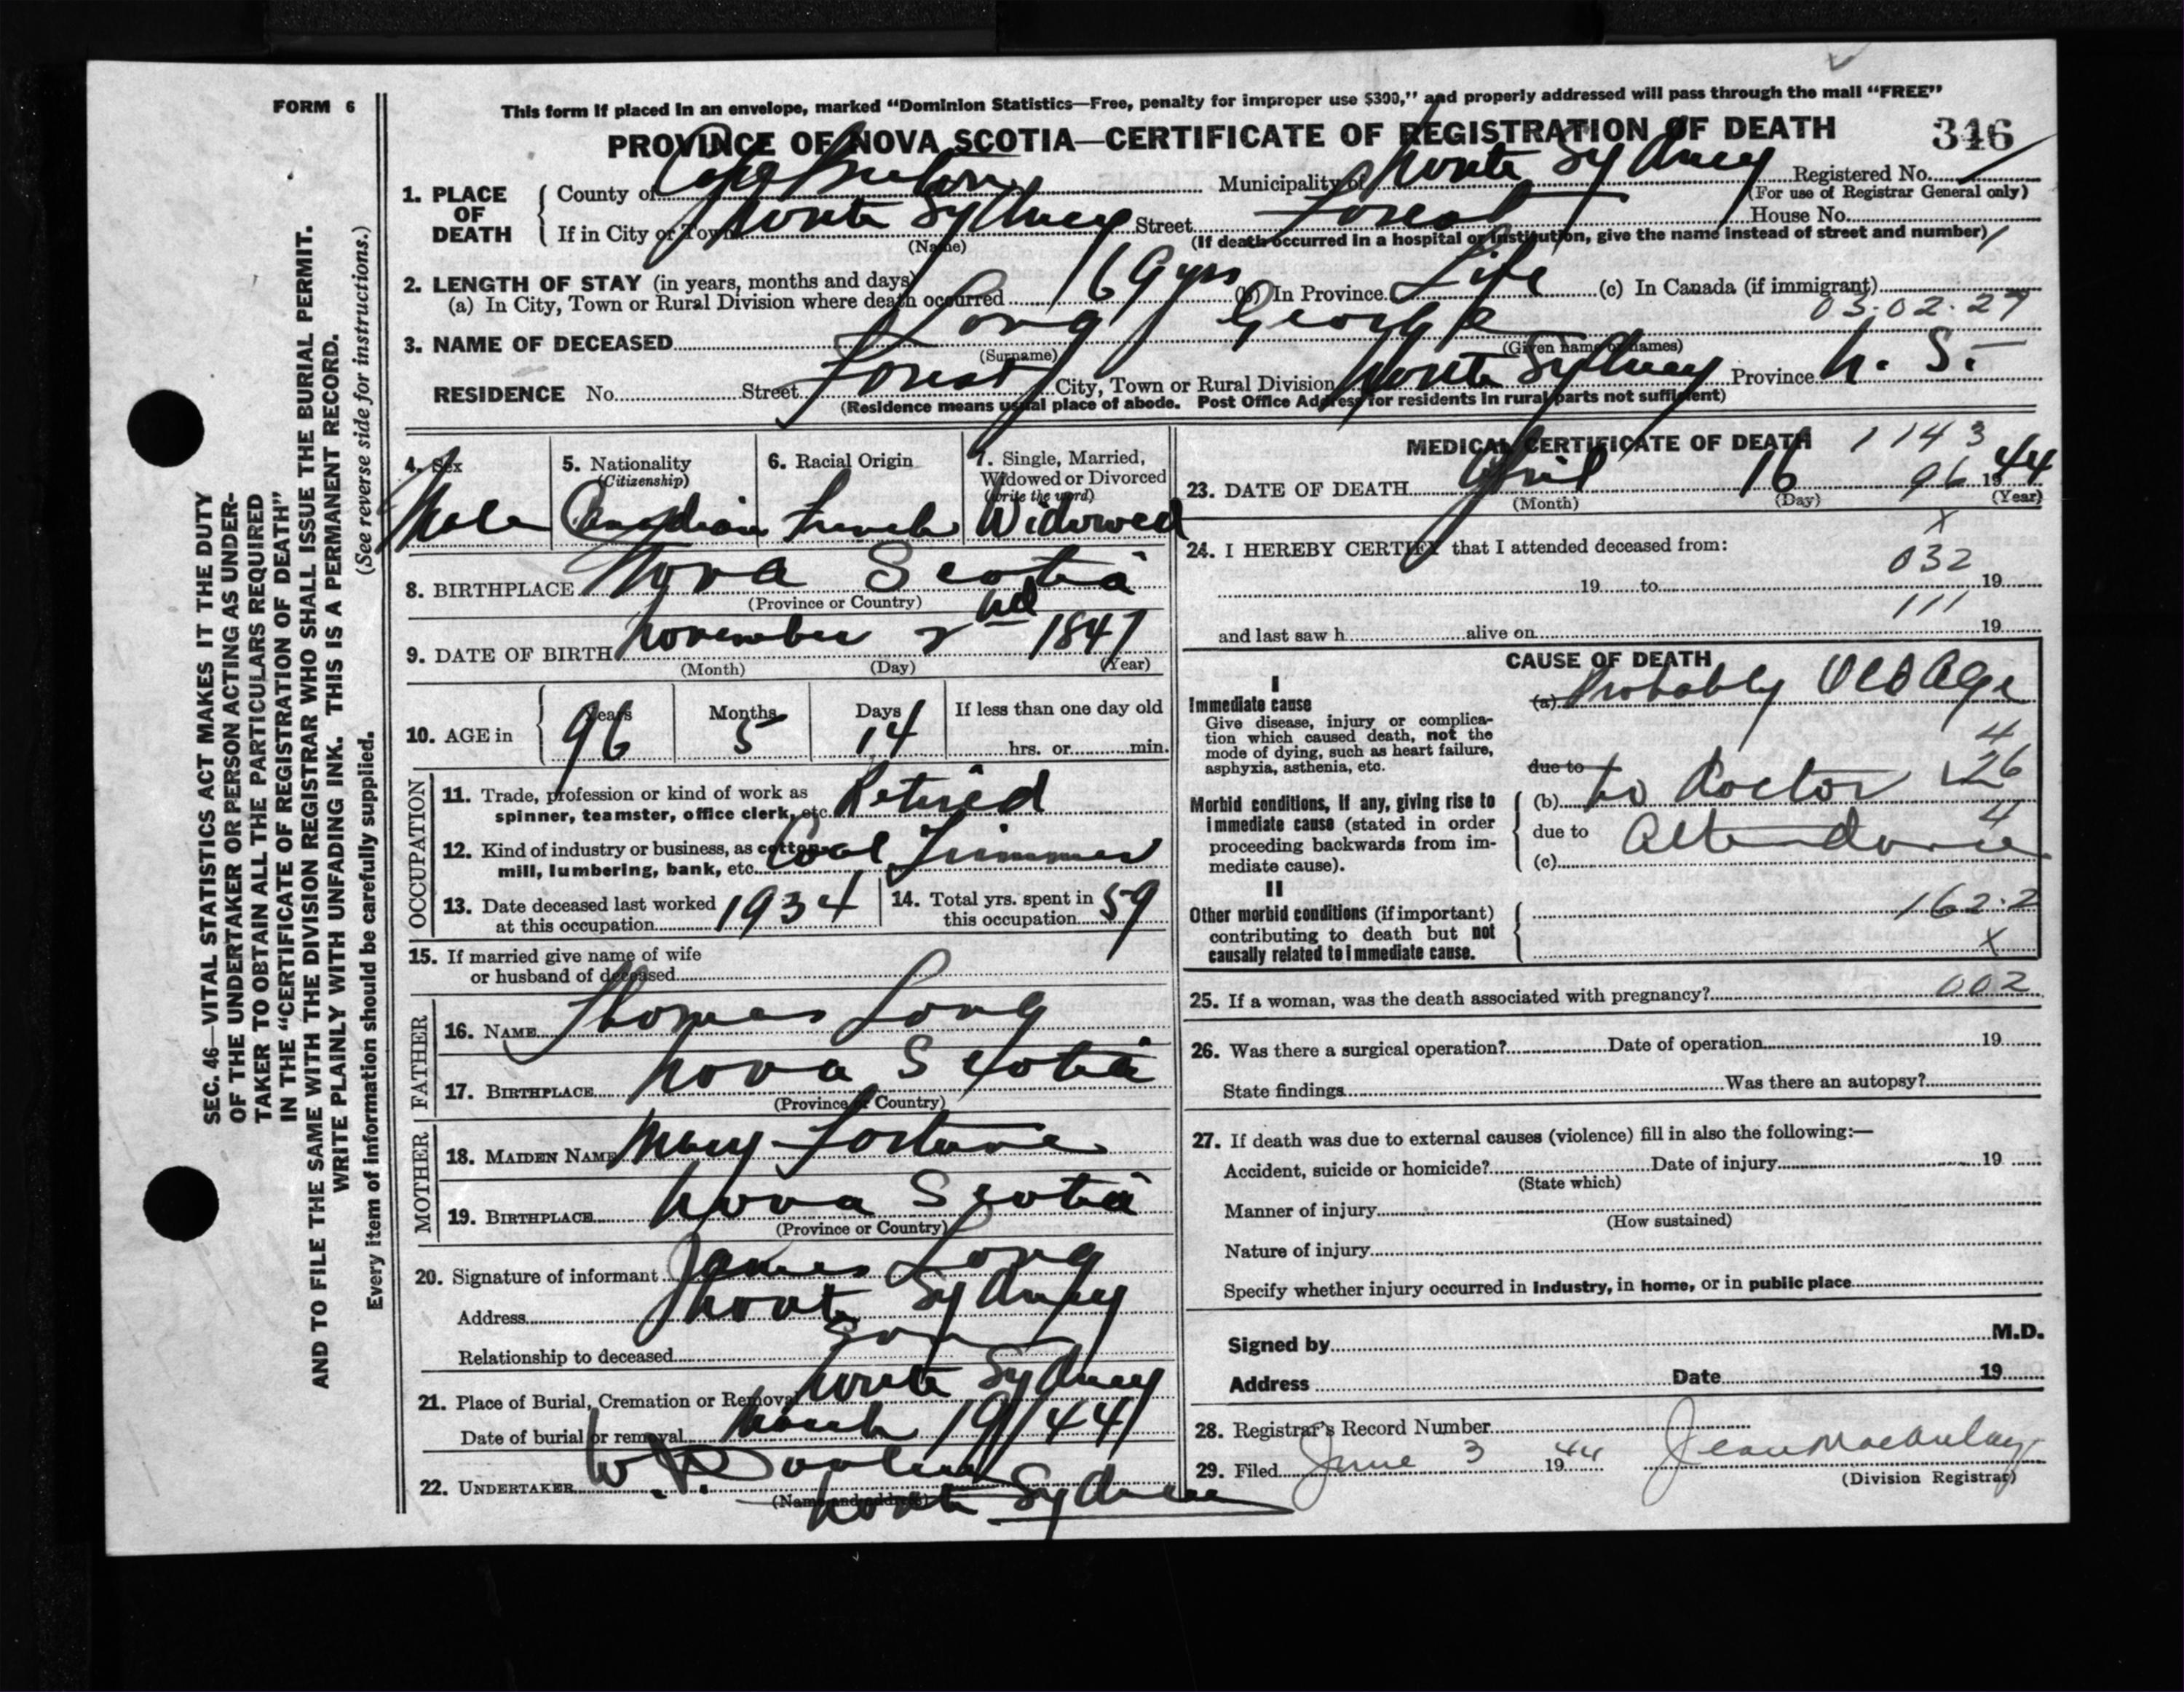 FORM 6
This form if placed in an envelope, marked "Dominion Statistics—Free, penalty for improper use $300," and properly addressed will pass through the mail "FREE"
PROVINCE OF NOVA SCOTIA—CERTIFICATE OF REGISTRATION OF DEATH 346
1. PLACE OF DEATH { County of Cape Breton Municipality of North Sydney Registered No.
(For use of Registrar General only)
If in City or Town North Sydney Street Forest House No.
(Name) (If death occurred in a hospital or institution, give the name instead of street and number)
2. LENGTH OF STAY (in years, months and days)
(a) In City, Town or Rural Division where death occurred 69 yrs (b) In Province Life (c) In Canada (if immigrant)
03.02.27
3. NAME OF DECEASED Long George
(Surname) (Given name or names)
RESIDENCE No. Street Forest City, Town or Rural Division North Sydney Province N. S.
(Residence means usual place of abode. Post Office Address for residents in rural parts not sufficient)
4. Sex 5. Nationality 6. Racial Origin 7. Single, Married,
(Citizenship) Widowed or Divorced
(write the word)
Male Canadian French Widowed
8. BIRTHPLACE Nova Scotia
(Province or Country)
9. DATE OF BIRTH November 2nd 1847
(Month) (Day) (Year)
10. AGE in { Years Months Days If less than one day old
96 5 14 hrs. or min.
OCCUPATION
11. Trade, profession or kind of work as
spinner, teamster, office clerk, etc. Retired
12. Kind of industry or business, as cotton
mill, lumbering, bank, etc. Coal Trimmer
13. Date deceased last worked
at this occupation 1934
14. Total yrs. spent in
this occupation 59
15. If married give name of wife
or husband of deceased
FATHER
16. NAME Thomas Long
17. BIRTHPLACE Nova Scotia
(Province or Country)
MOTHER
18. MAIDEN NAME Mary Fortune
19. BIRTHPLACE Nova Scotia
(Province or Country)
20. Signature of informant James Long
Address North Sydney
Relationship to deceased Son
21. Place of Burial, Cremation or Removal North Sydney
Date of burial or removal March 19/44
22. UNDERTAKER W.
(Name and address)
North Sydney
MEDICAL CERTIFICATE OF DEATH 1143
23. DATE OF DEATH April 16 96 1944
(Month) (Day) (Year)
x
24. I HEREBY CERTIFY that I attended deceased from:
032
19 to 19
111
and last saw h alive on 19
CAUSE OF DEATH
I
Immediate cause
Give disease, injury or complication which caused death, not the
mode of dying, such as heart failure,
asphyxia, asthenia, etc.
(a) Probably Old Age
4
due to 26
Morbid conditions, if any, giving rise to
immediate cause (stated in order
proceeding backwards from immediate cause).
(b) no Doctor 4
due to Attendance
(c)
II
Other morbid conditions (if important)
contributing to death but not
causally related to immediate cause.
162.2
x
25. If a woman, was the death associated with pregnancy? 002
26. Was there a surgical operation? Date of operation 19
State findings Was there an autopsy?
27. If death was due to external causes (violence) fill in also the following:—
Accident, suicide or homicide? Date of injury 19
(State which)
Manner of injury
(How sustained)
Nature of injury
Specify whether injury occurred in Industry, in home, or in public place
Signed by M.D.
Address Date 19
28. Registrar's Record Number
29. Filed June 3 1944 Jean
(Division Registrar)
SEC. 46—VITAL STATISTICS ACT MAKES IT THE DUTY
OF THE UNDERTAKER OR PERSON ACTING AS UNDER-
TAKER TO OBTAIN ALL THE PARTICULARS REQUIRED
IN THE "CERTIFICATE OF REGISTRATION OF DEATH"
AND TO FILE THE SAME WITH THE DIVISION REGISTRAR WHO SHALL ISSUE THE BURIAL PERMIT.
WRITE PLAINLY WITH UNFADING INK. THIS IS A PERMANENT RECORD.
(See reverse side for instructions.)
Every item of information should be carefully supplied.